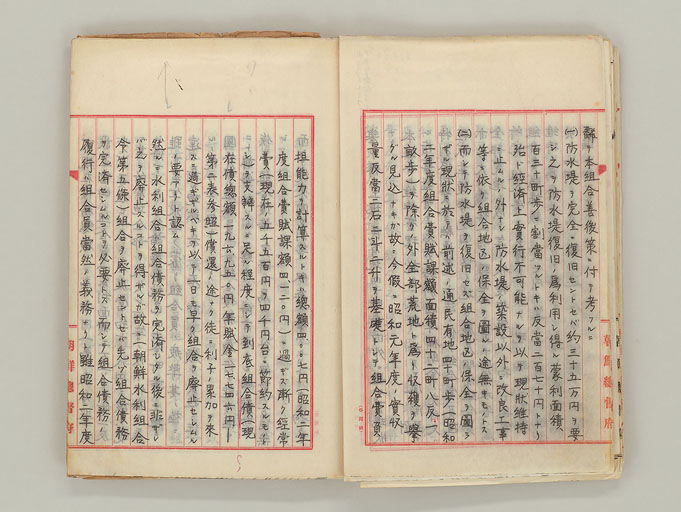 飜テ本組合善後策ニ付テ考フルニ
(一)防水堤ヲ完全ニ復旧セントセバ約三十五万円ヲ要
シ之ヲ防水堤復旧ノ為利用シ得ル蒙利面積
百三十町歩ニ割当ツルトキハ反当二百七十円トナリ
殆ド経済上実行不可能ナルヲ以テ現状維持
ニ止ムルノ外ナシ防水堤ノ築設以外ノ改良工事
等ニ依リ組合地区ノ保全ヲ圖ルノ途無キモノトス
(二)而シテ防水堤ヲ復旧セズ組合地区ノ保全ヲ圖ラ
ザル現状ニ於テハ前述ノ通民有地四十町歩(昭和
二年度組合費賦課額面積四十二町八反一
畝歩)ヲ除クノ外全部荒地ト為リ収穫ヲ挙
グル見込ナキガ故ニ今假ニ昭和元年度ノ實収
量反当二石二斗二升ヲ基礎トシテ組合費負
担能力ヲ計算スルトキハ總額四、七円(昭和二年
度組合費賦課額四、一二〇円)ニ過ギズ漸ク経常
費(現在ノ五千五百円ヲ四千円台ニ節約スルモノ
トシ)ヲ支辨スルニ足ル程度ニシテ到底組合債(現
在債總額一九六、九五〇円年賦金一七、七四六円
第二表参照)償還ノ途ナク徒ニ利子ノ累加ヲ来
スニ過ギザルベキヲ以テ一日モ早ク組合ヲ廃止セシムル
ノ要アリト認ム
然ルニ水利組合ハ組合債務ヲ完済シタル後ニ非ザレ
バ之ヲ廃止スルコトヲ得ザルガ故ニ(朝鮮水利組合
令第五條)組合ヲ廃止セントセバ先ヅ組合債務
ヲ完済セシムルコトヲ必要トス而シテ組合債務ノ
履行ハ組合員当然ノ義務ナリト雖昭和二年度
朝鮮總督府
朝鮮總督府